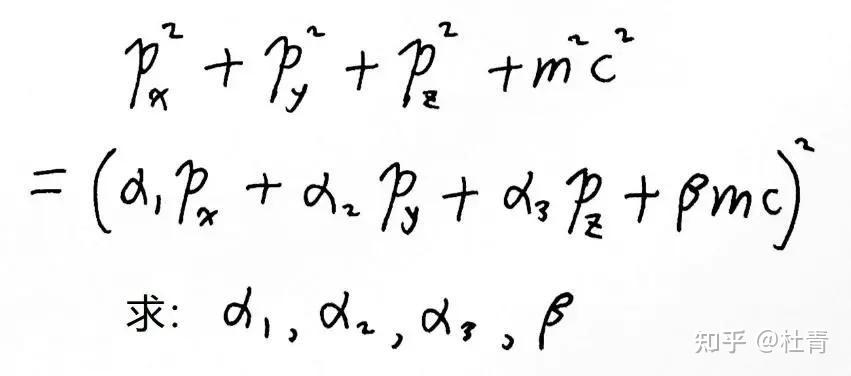 p_x² + p_y² + p_z² + m²c²
= (α₁p_x + α₂p_y + α₃p_z + βmc)²
求: α₁, α₂, α₃, β
知乎 @杜青